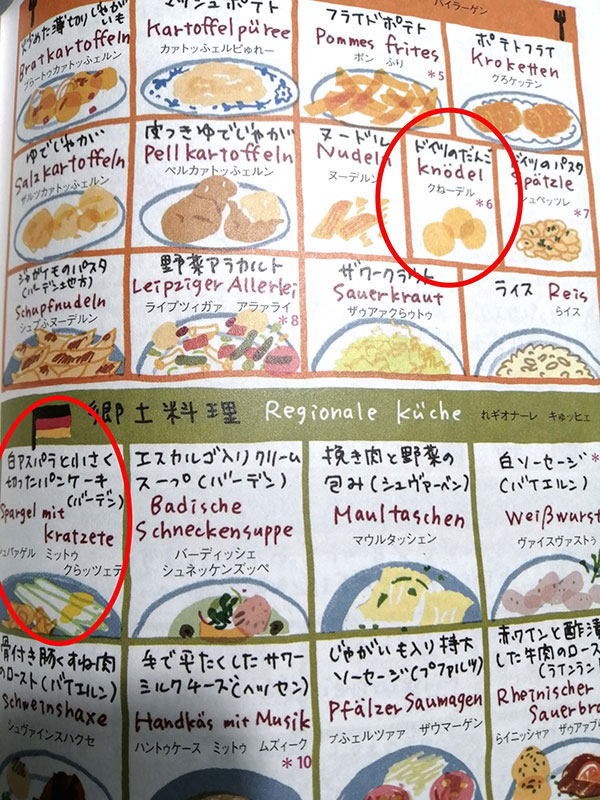 バイラーゲン
炒めた薄切りじゃがいも
Bratkartoffeln
ブラートゥカァトッフェルン
マッシュポテト
Kartoffelpüree
カァトッふェルピゅれー
フライドポテト
Pommes frites
ポン ふり
*5
ポテトフライ
Kroketten
クろケッテン
ゆでじゃがいも
Salzkartoffeln
ザルツカァトッふェルン
皮つきゆでじゃがいも
Pellkartoffeln
ペルカァトッふェルン
ヌードル
Nudeln
ヌーデルン
ドイツのだんご
knödel
クねーデル
*6
ドイツのパスタ
Spätzle
シュペッツレ
*7
じゃがイモのパスタ
(バーデン地方)
Schupfnudeln
シュプふヌーデルン
野菜アラカルト
Leipziger Allerlei
ライプツィガァ アラァライ
*8
ザワークラウト
Sauerkraut
ザゥアァクらゥトゥ
ライス Reis
らイス
郷土料理 Regionale Küche れギオナーレ キゅッヒェ
白アスパラと小さく
切ったパンケーキ
(バーデン)
Spargel mit
kratzete
シュパァゲル ミットゥ
クらッツェテ
エスカルゴ入りクリーム
スープ(バーデン)
Badische
Schneckensuppe
バーディッシェ
シュネッケンズッペ
挽き肉と野菜の
包み(シュヴァーベン)
Maultaschen
マウルタッシェン
白ソーセージ*
(バイエルン)
Weißwurst
ヴァイスヴァストゥ
骨付き豚くすね肉
のロースト(バイエルン)
Schweinshaxe
シュヴァインスハクセ
手で平たくしたサワー
ミルクチーズ(ヘッセン)
Handkäs mit Musik
ハントゥケース ミットゥ ムズィーク
*10
じゃがいも入り特大
ソーセージ(プファルツ)
Pfälzer Saumagen
プふェルツァァ ザウマーゲン
赤ワインと酢漬
した牛肉のロース
(ラインラン
Rheinischer
Sauerbra
らイニッシャァ ザゥアァブら